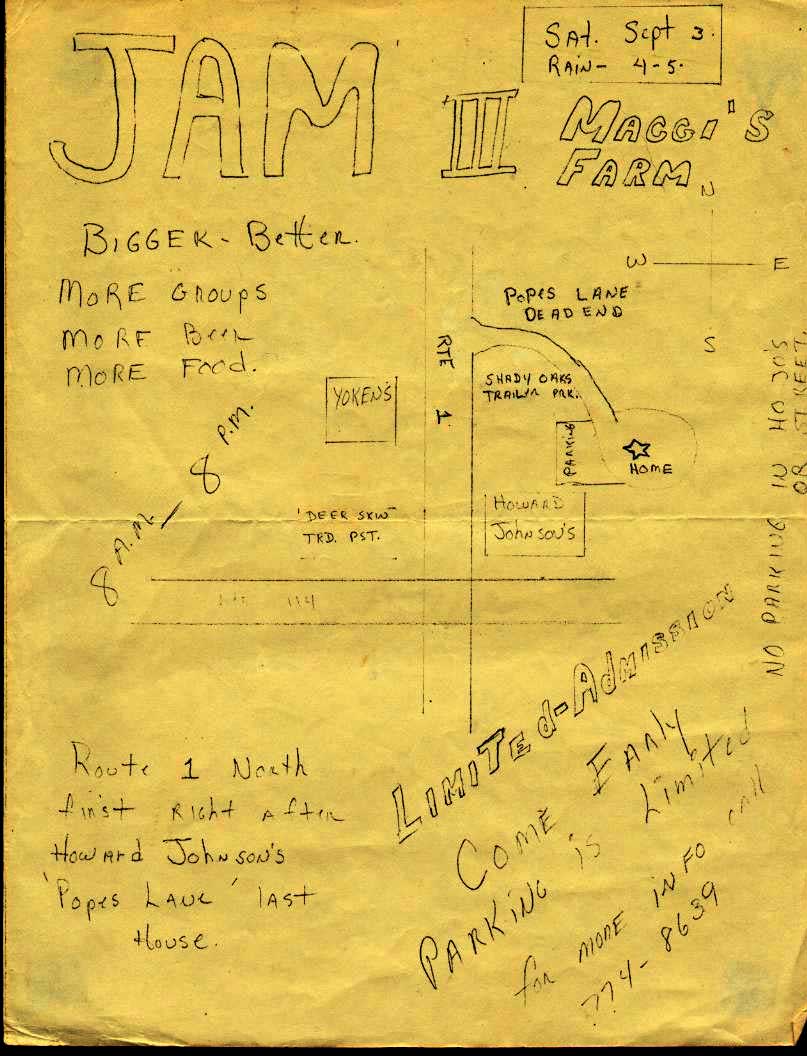 SAT. Sept 3.
RAIN- 4-5.
JAM III MAGGI'S
FARM
BIGGER - Better.
MORE GROUPS
MORE Beer
MORE Food.
8 A.M. – 8 P.M.
N
W E
S
POPES LANE
DEAD END
RTE 1
SHADY OAKS
TRAILR PRK.
YOKEN'S
PARKING
HOME
HOWARD
JOHNSON'S
'DEER SKIN'
TRD. PST.
114
NO PARKING IN HO JO'S
OR STREET
LIMITED-ADMISSION
COME EARLY
PARKING is Limited
for MORE INFO call
774-8639
Route 1 North
first RIGHT After
Howard Johnson's
'Popes LANE' last
House.